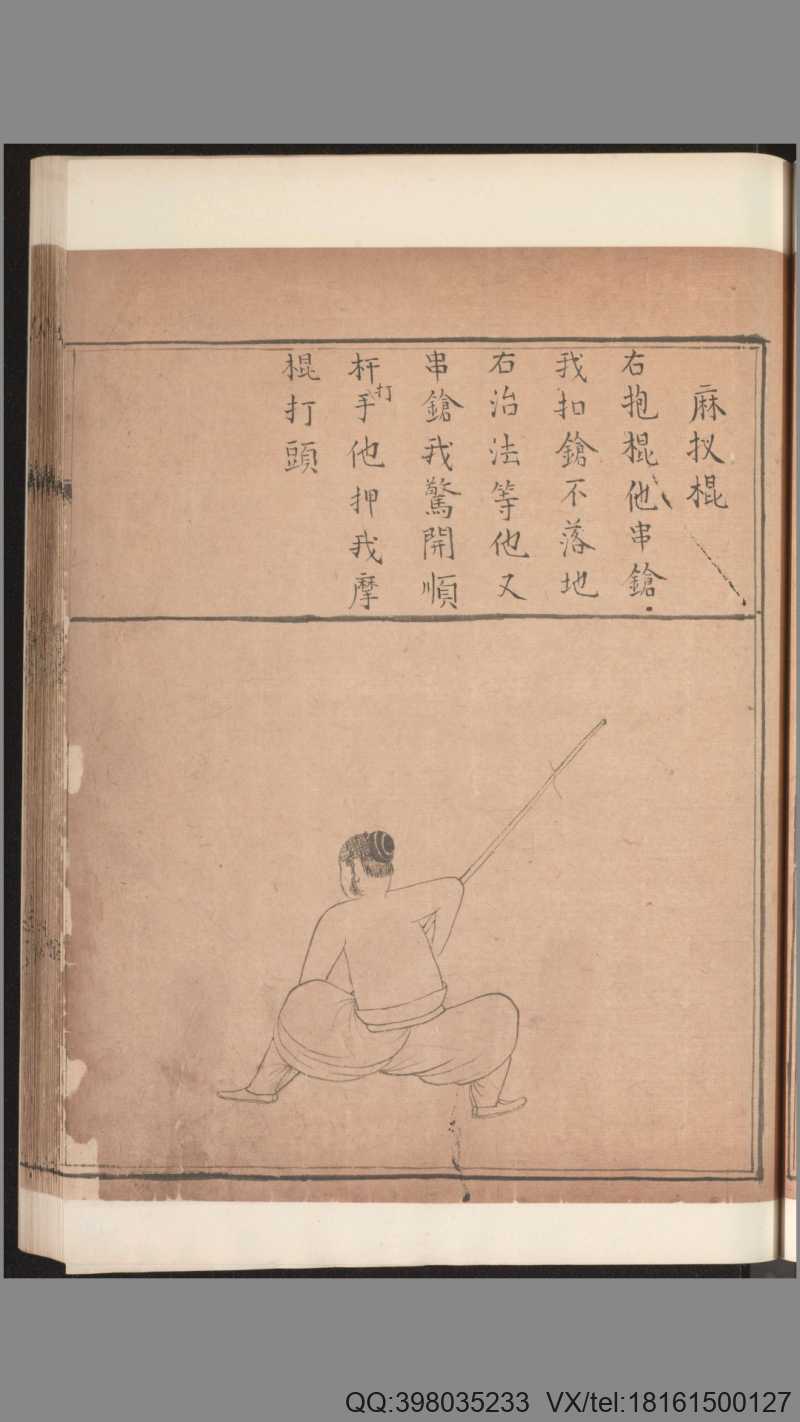 麻扠棍
右抱棍他串鎗
我扣鎗不落地
右治法等他又
串鎗我驚開順
杆打手他押我摩
棍打頭
QQ:398035233 VX/tel:18161500127